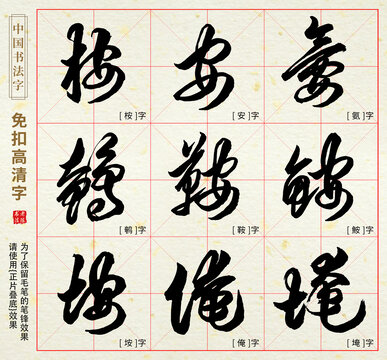 中国书法字
免扣高清字
为了保留毛笔的笔锋效果
请使用[正片叠底]效果
桉 安 氨
[桉]字 [安]字 [氨]字
鹌 鞍 鮟
[鹌]字 [鞍]字 [鮟]字
垵 俺 埯
[垵]字 [俺]字 [埯]字